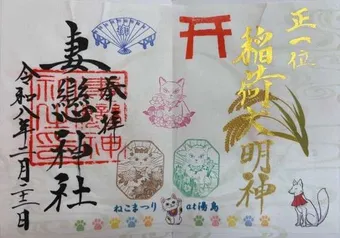 正一位
稲荷大明神
奉拝
妻戀神社
令和八年二月二十二日
ねこまつり at湯島